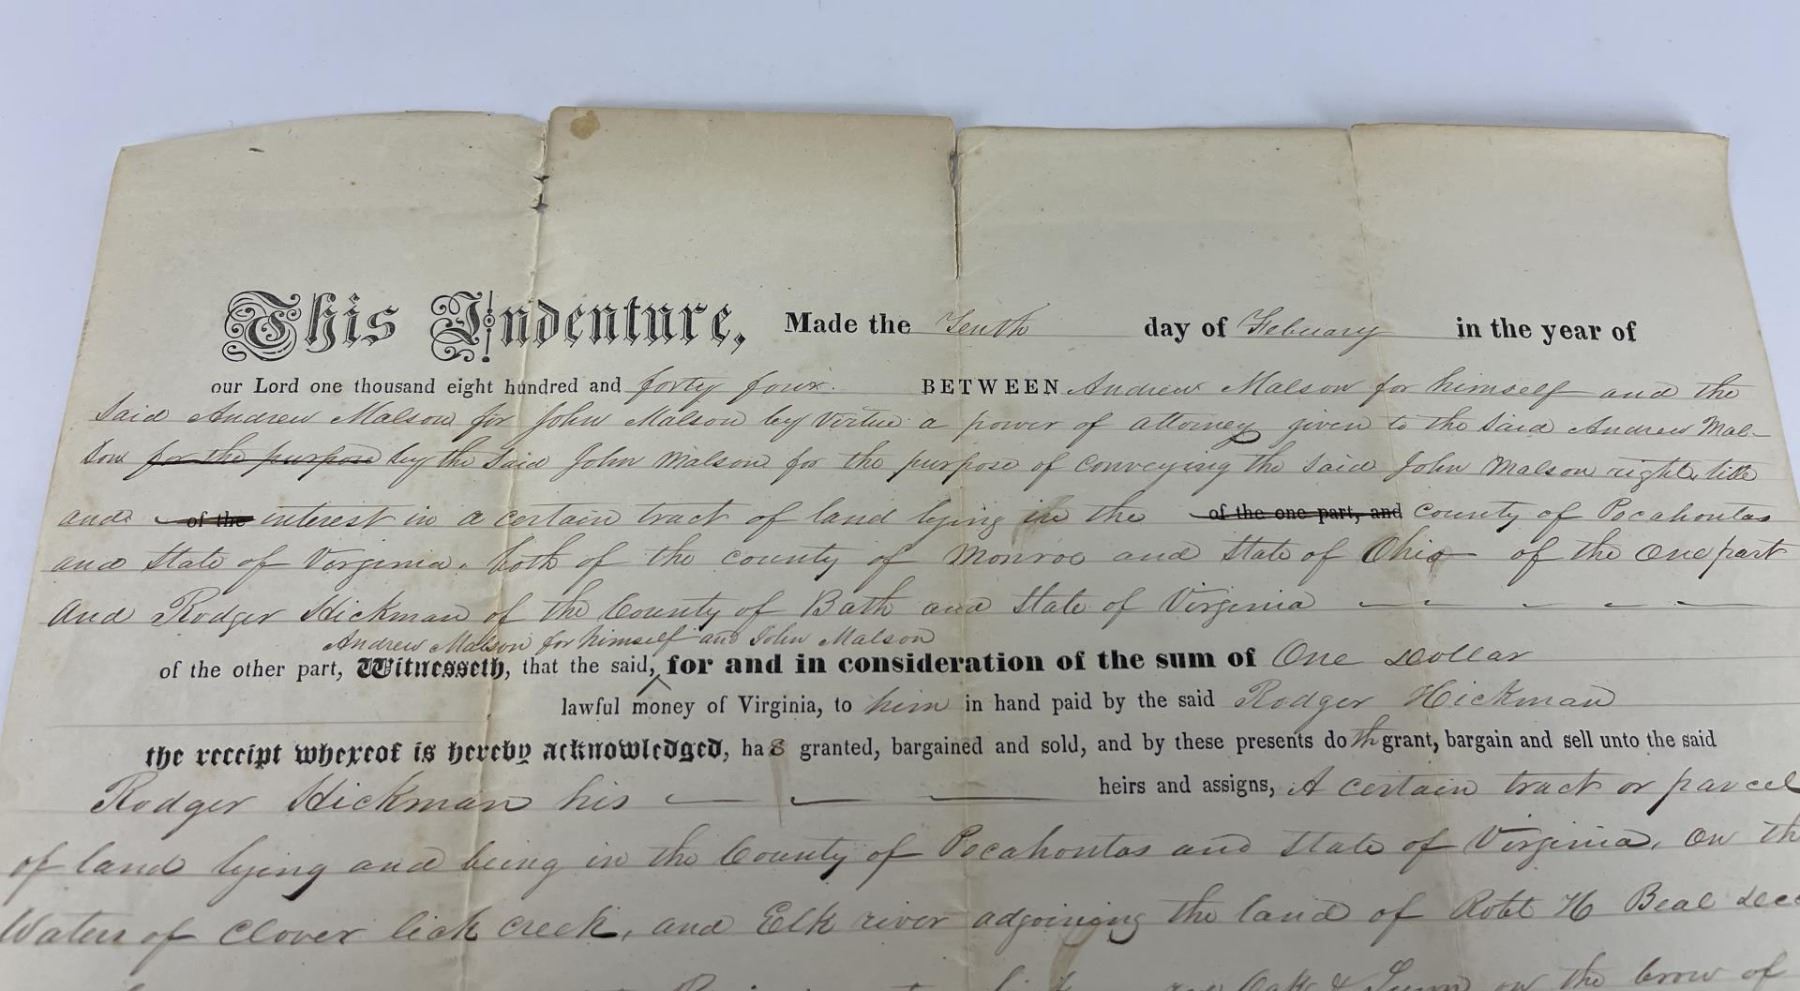 This Indenture, Made the Tenth day of Febuary in the year of
our Lord one thousand eight hundred and forty four. BETWEEN Andrew Malson for himself and the
said Andrew Malson for John Malson by virtue a power of attorney given to the said Andrew Mal-
son for the purpose by the said John Malson for the purpose of conveying the said John Malson right, title
and of the interest in a certain tract of land lying in the of the one part, and County of Pocahontas
and State of Virginia. both of the county of Monroe and State of Ohio of the One part
And Rodger Hickman of the County of Bath and State of Virginia
Andrew Malson for himself and John Malson
of the other part, Witnesseth, that the said, for and in consideration of the sum of One Dollar
lawful money of Virginia, to him in hand paid by the said Rodger Hickman
the receipt whereof is hereby acknowledged, has granted, bargained and sold, and by these presents doth grant, bargain and sell unto the said
Rodger Hickman his heirs and assigns, A certain tract or parcel
of land lying and being in the County of Pocahontas and State of Virginia, on th
Waters of Clover lick creek, and Elk river adjoining the land of Robt H Beal
Oak & on the brow of